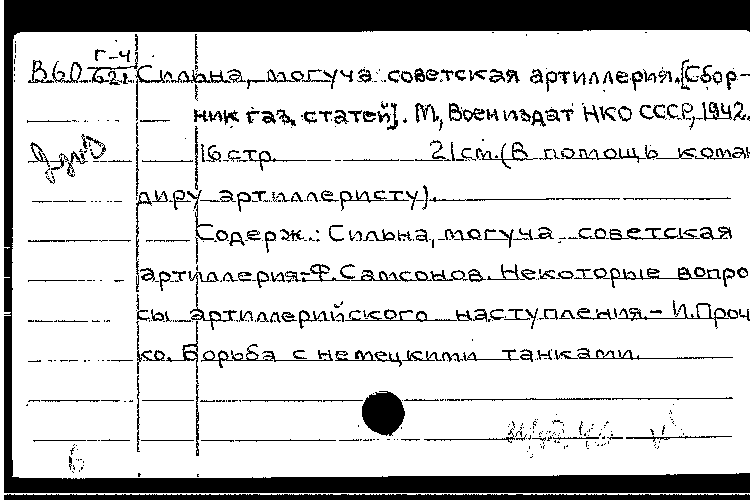 В60 Г-4/621 Сильна, могуча советская артиллерия. [Сбор-
ник газ. статей]. М, Воениздат НКО СССР, 1942.
16 стр. 21 см. (В помощь коман
диру артиллеристу).
Содерж.: Сильна, могуча советская
артиллерия.-Ф. Самсонов. Некоторые вопро
сы артиллерийского наступления.- И. Проч
ко. Борьба с немецкими танками.
б